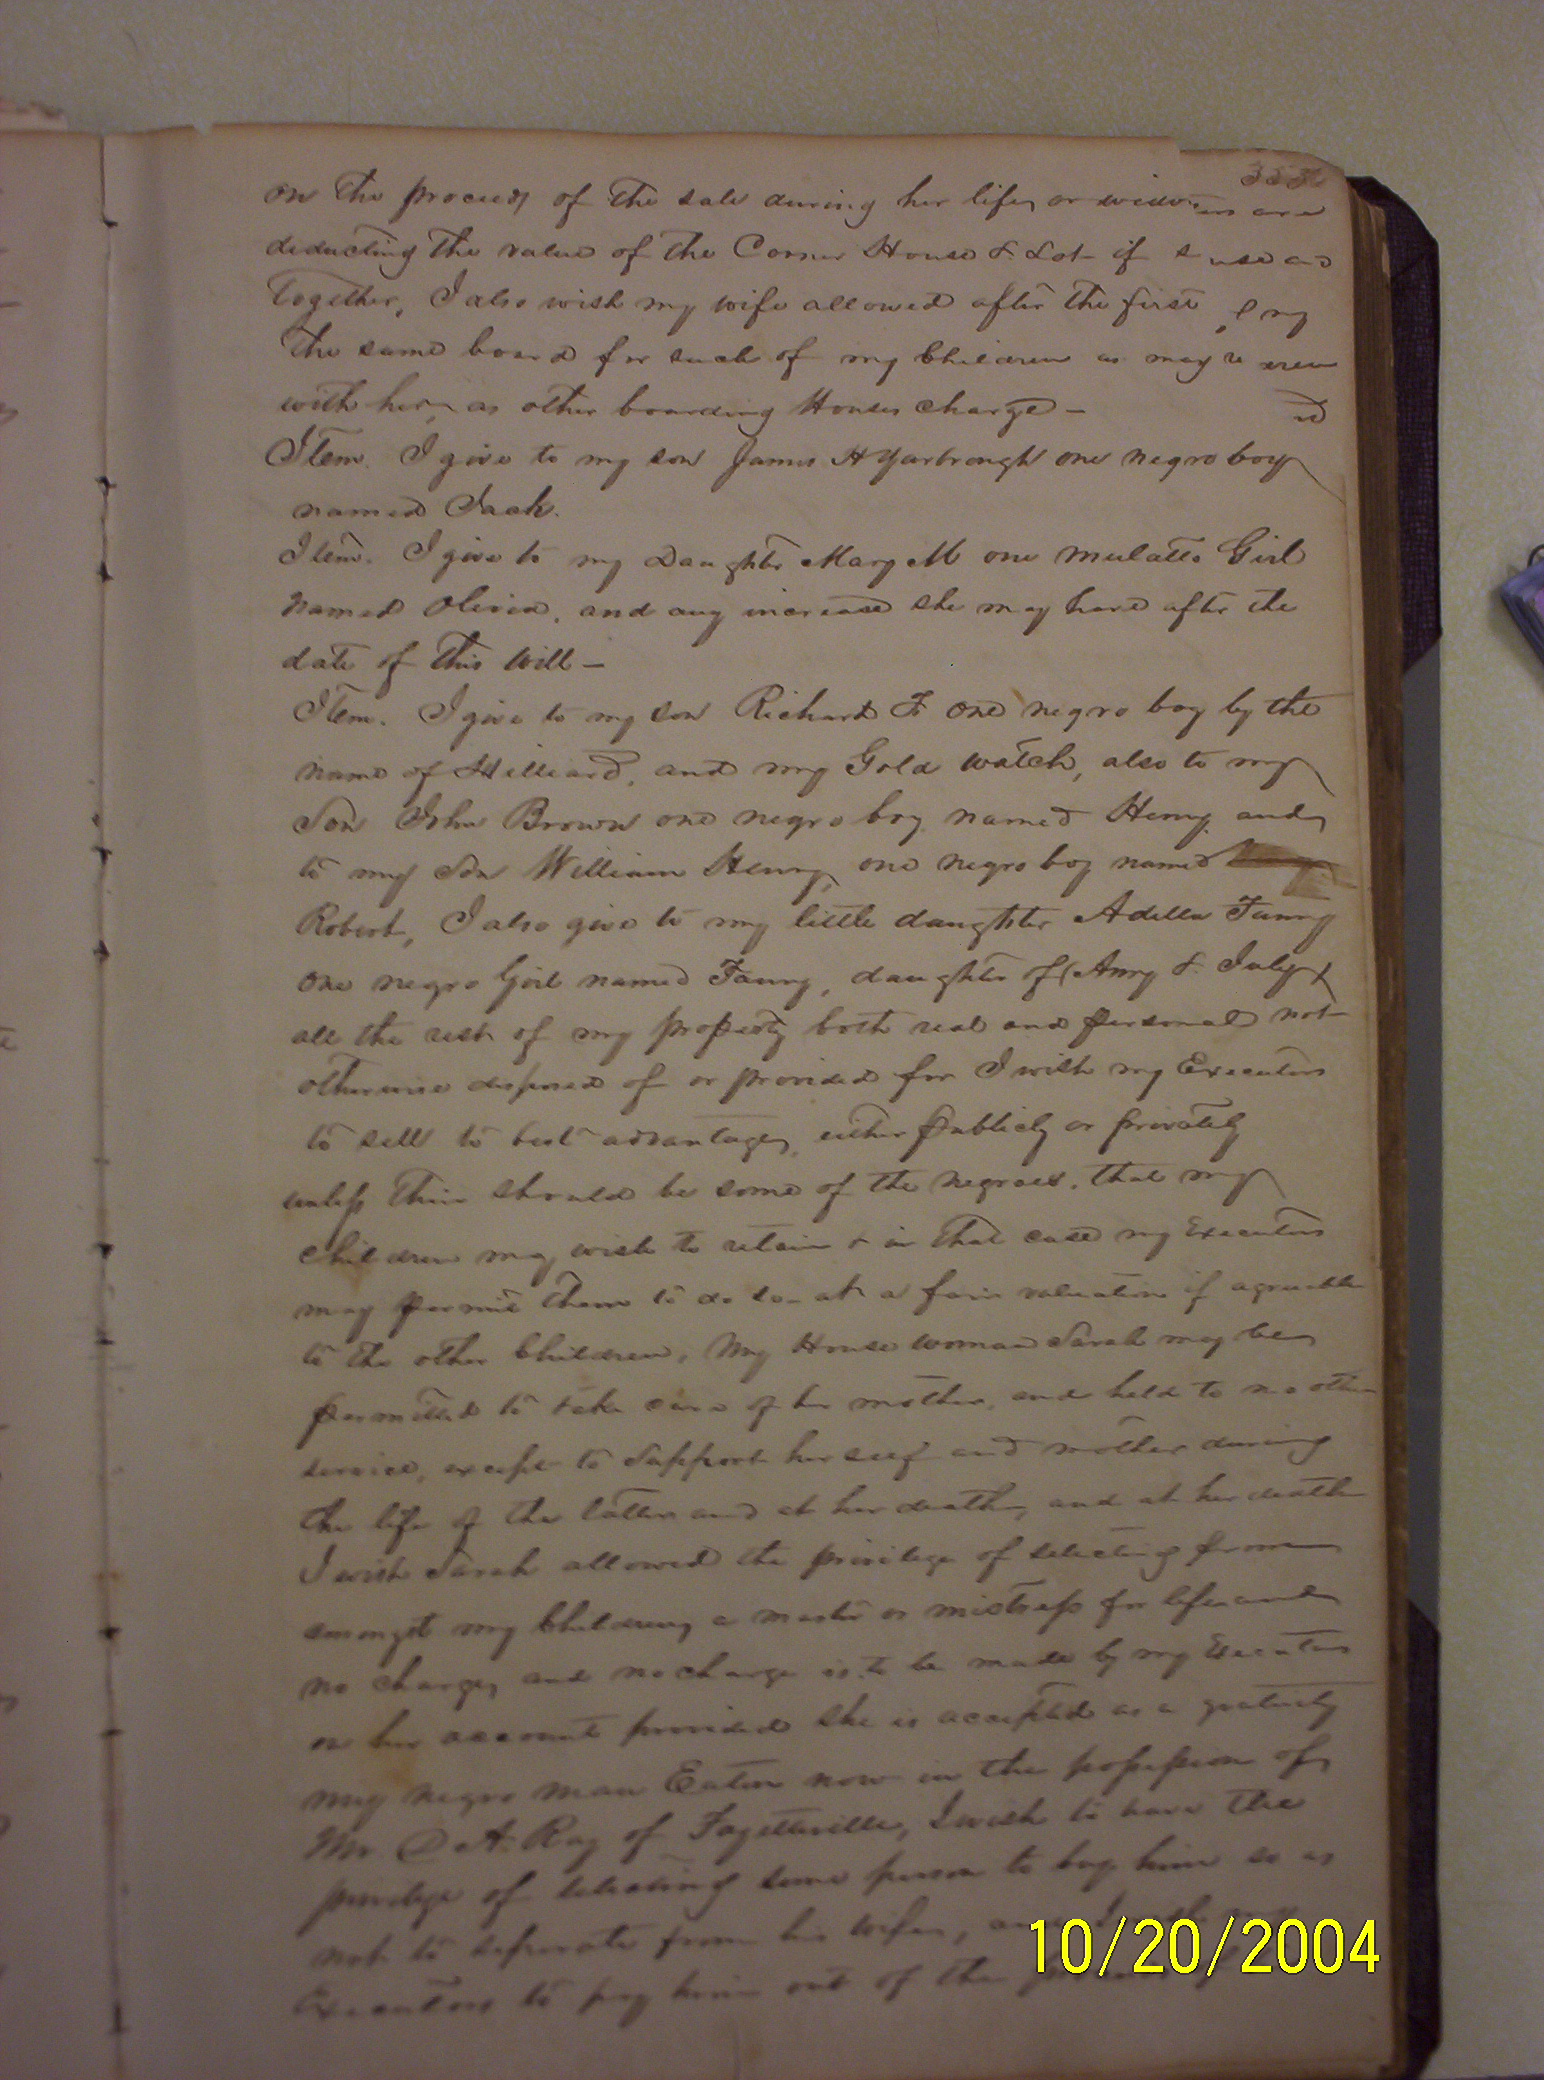 on the proceeds of the sale during her life, or
deducting the value of the Corner House & Lot if
together, I also wish my wife allowed after the first
the same board for such of my Children as may
with her, as other boarding Houses charge -
Item. I give to my son James H Yarbrough one negro boy
named Jack.
Item. I give to my Daughter Mary M one mulatto Girl
named Olivia, and any increase she may have after the
date of this Will -
Item. I give to my son Richard F one negro boy by the
name of Hilliard, and my Gold watch, also to my
Son John Brown one negro boy named Henry and
to my Son William Henry, one negro boy named
Robert, I also give to my little daughter Adella Fanny
one negro Girl named Fanny, daughter of (Amy & July)
all the rest of my property both real and personal not
otherwise disposed of or provided for I wish my Executors
to sell to best advantage, either publicly or privately
unless their should be some of the negroes, that my
children may wish to retain & in that case my Executors
may permit them to do so - at a fair valuation if agreeable
to the other Children, My House woman Sarah may be
permitted to take care of her mother, and held to no other
service, except to support her self and mother during
the life of the latter and at her death, and at her death
I wish Sarah allowed the privilege of selecting from
amongst my Children, a master or mistress for life and
no charge, and no charge is to be made by my Executors
on her account provided she is accepted as a gratuity
my negro man Eaton now in the possession of
Mr D A Ray of Fayetteville, I wish to have the
privilege of selecting some person to buy him so as
not to seperate from his wife,
Executors to pay him out of the
10/20/2004